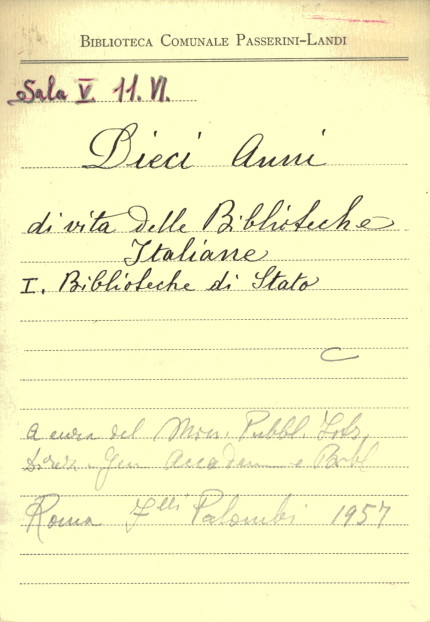 BIBLIOTECA COMUNALE PASSERINI-LANDI
Sala V. 11. VI.
Dieci Anni
di vita delle Biblioteche
Italiane
I. Biblioteche di Stato
a cura del Min. Pubbl. Istr.
Direz. Gen Accadem e Bibl
Roma F.lli Palombi 1957